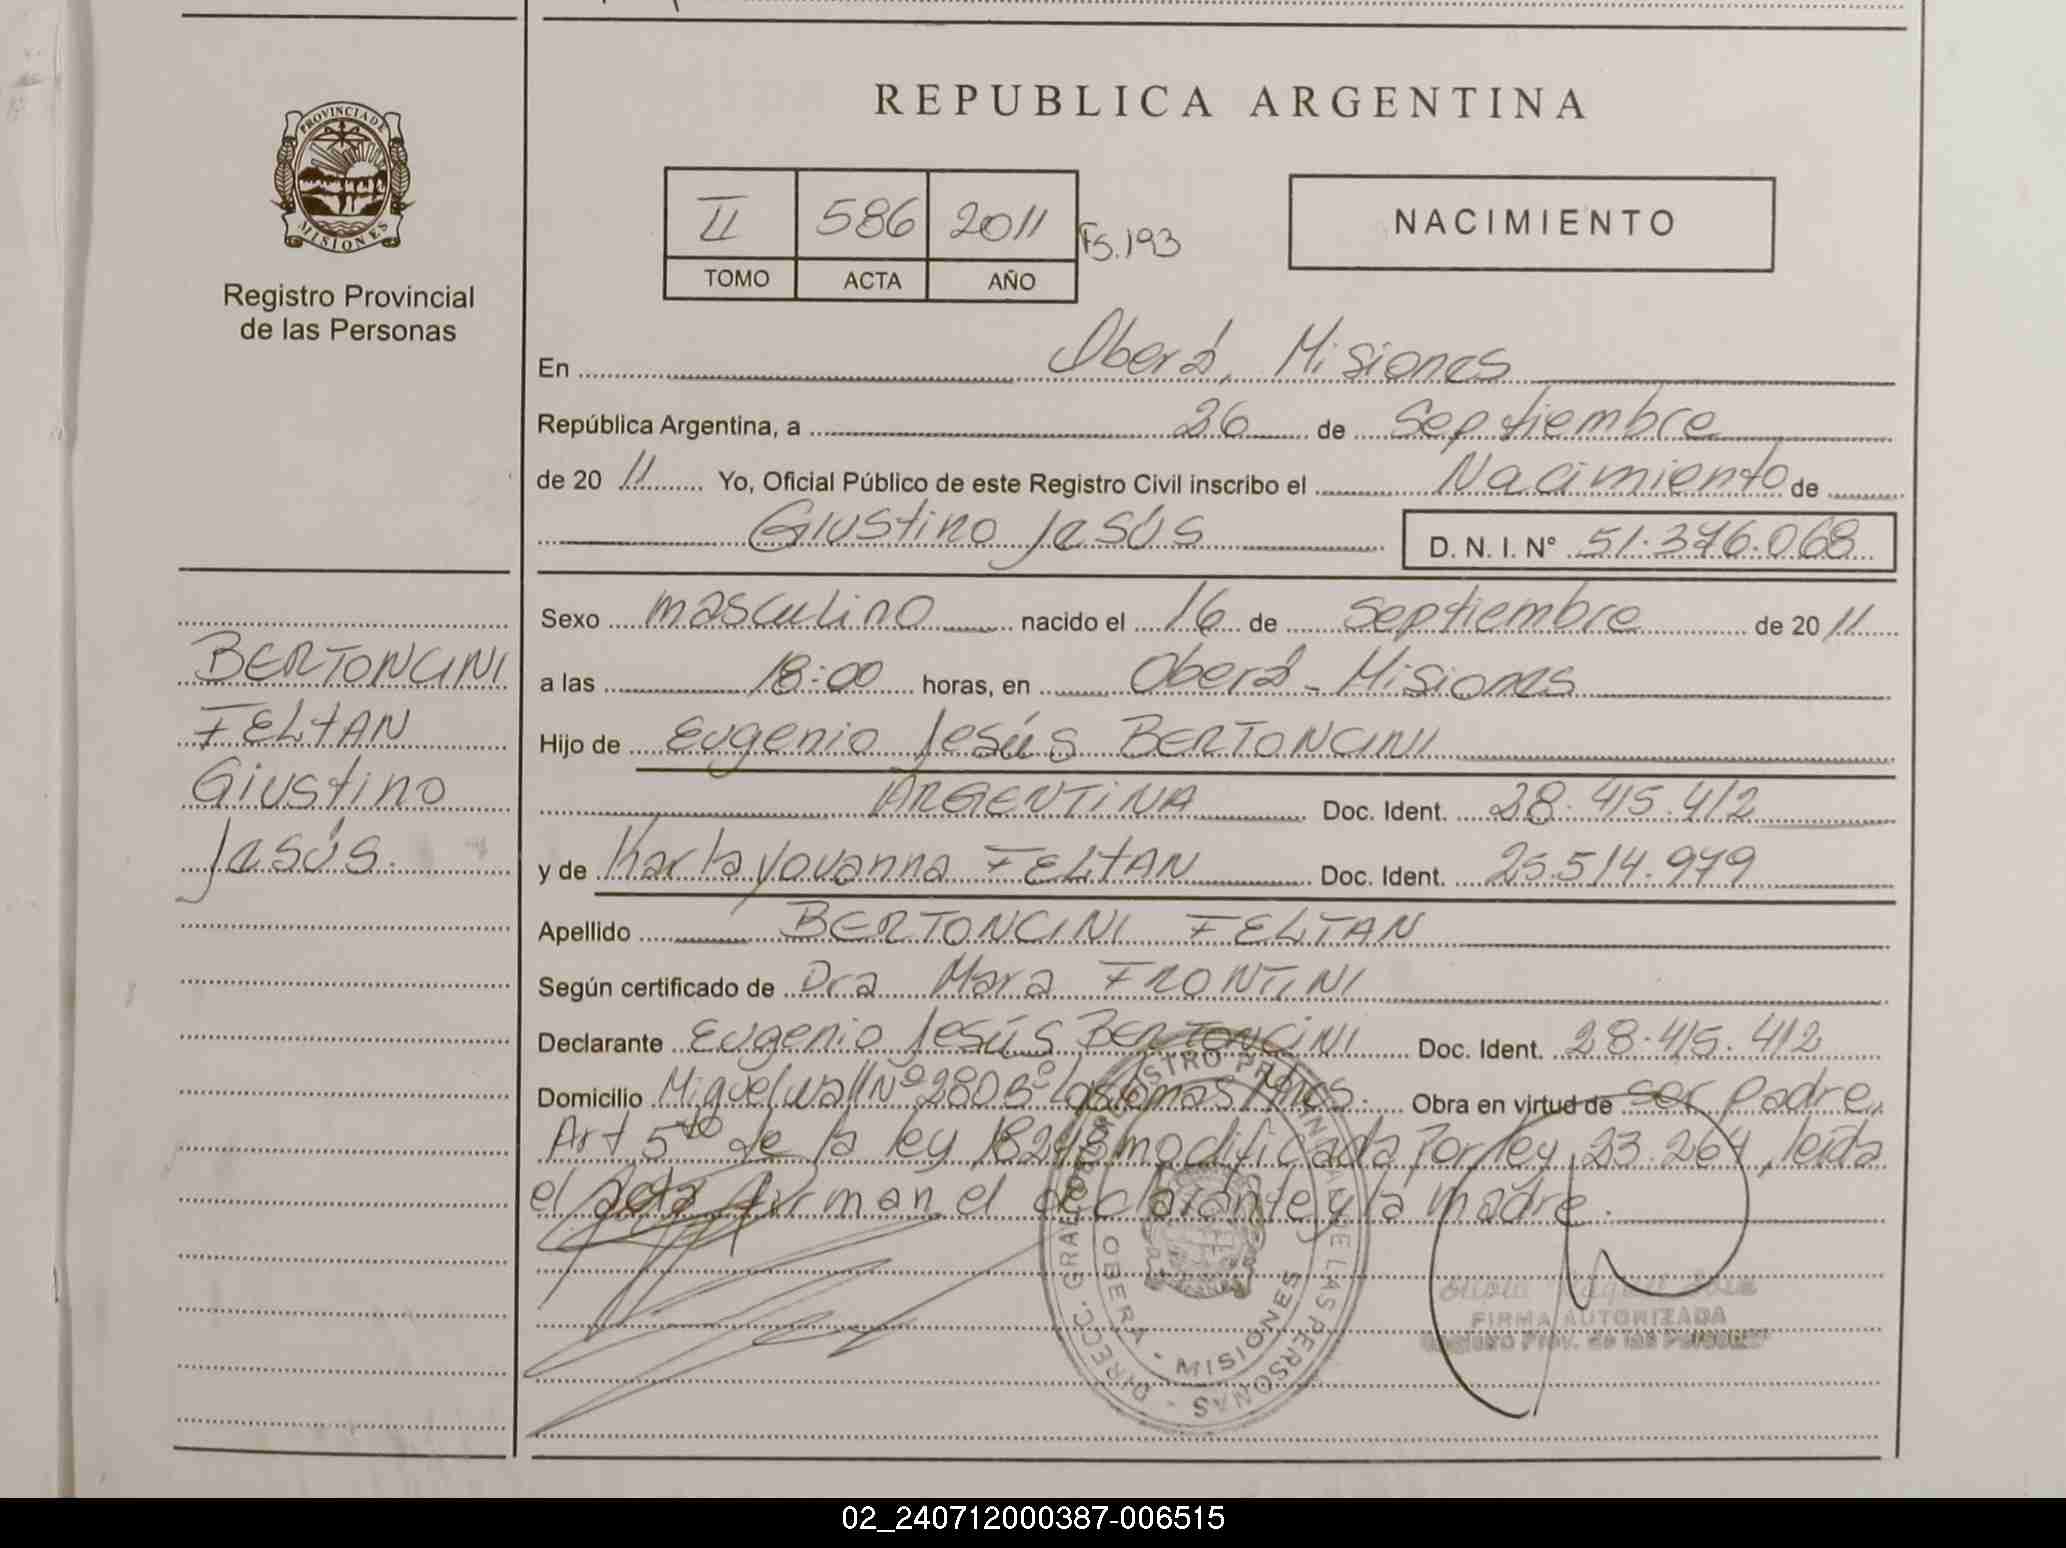 REPUBLICA ARGENTINA
PROVINCIA DE MISIONES
Registro Provincial
de las Personas
II 586 2011 Fs.193
TOMO ACTA AÑO
NACIMIENTO
En Oberá, Misiones
República Argentina, a 26 de Septiembre
de 20 11 Yo, Oficial Público de este Registro Civil inscribo el Nacimiento de
Giustino Jesús D. N. I. Nº 51.376.068
BERTONCINI
FELTAN
Giustino
Jesús.
Sexo masculino nacido el 16 de Septiembre de 20 11
a las 18:00 horas, en Oberá - Misiones
Hijo de Eugenio Jesús BERTONCINI
ARGENTINA Doc. Ident. 28.415.412
y de Karla Yovanna FELTAN Doc. Ident. 25.514.979
Apellido BERTONCINI FELTAN
Según certificado de Dra Mara FRONTINI
Declarante Eugenio Jesús BERTONCINI Doc. Ident. 28.415.412
Domicilio Miguel Wall Nº 280 Bº Obra en virtud de ser padre,
Art 5to de la ley 18248 modificada Por ley 23.264, leída
el acta firman el declarante y la madre.
DIRECC. GRAL. DEL REGISTRO PROVINCIAL DE LAS PERSONAS
OBERA - MISIONES
FIRMA AUTORIZADA
Registro Prov. de las Personas
02_240712000387-006515